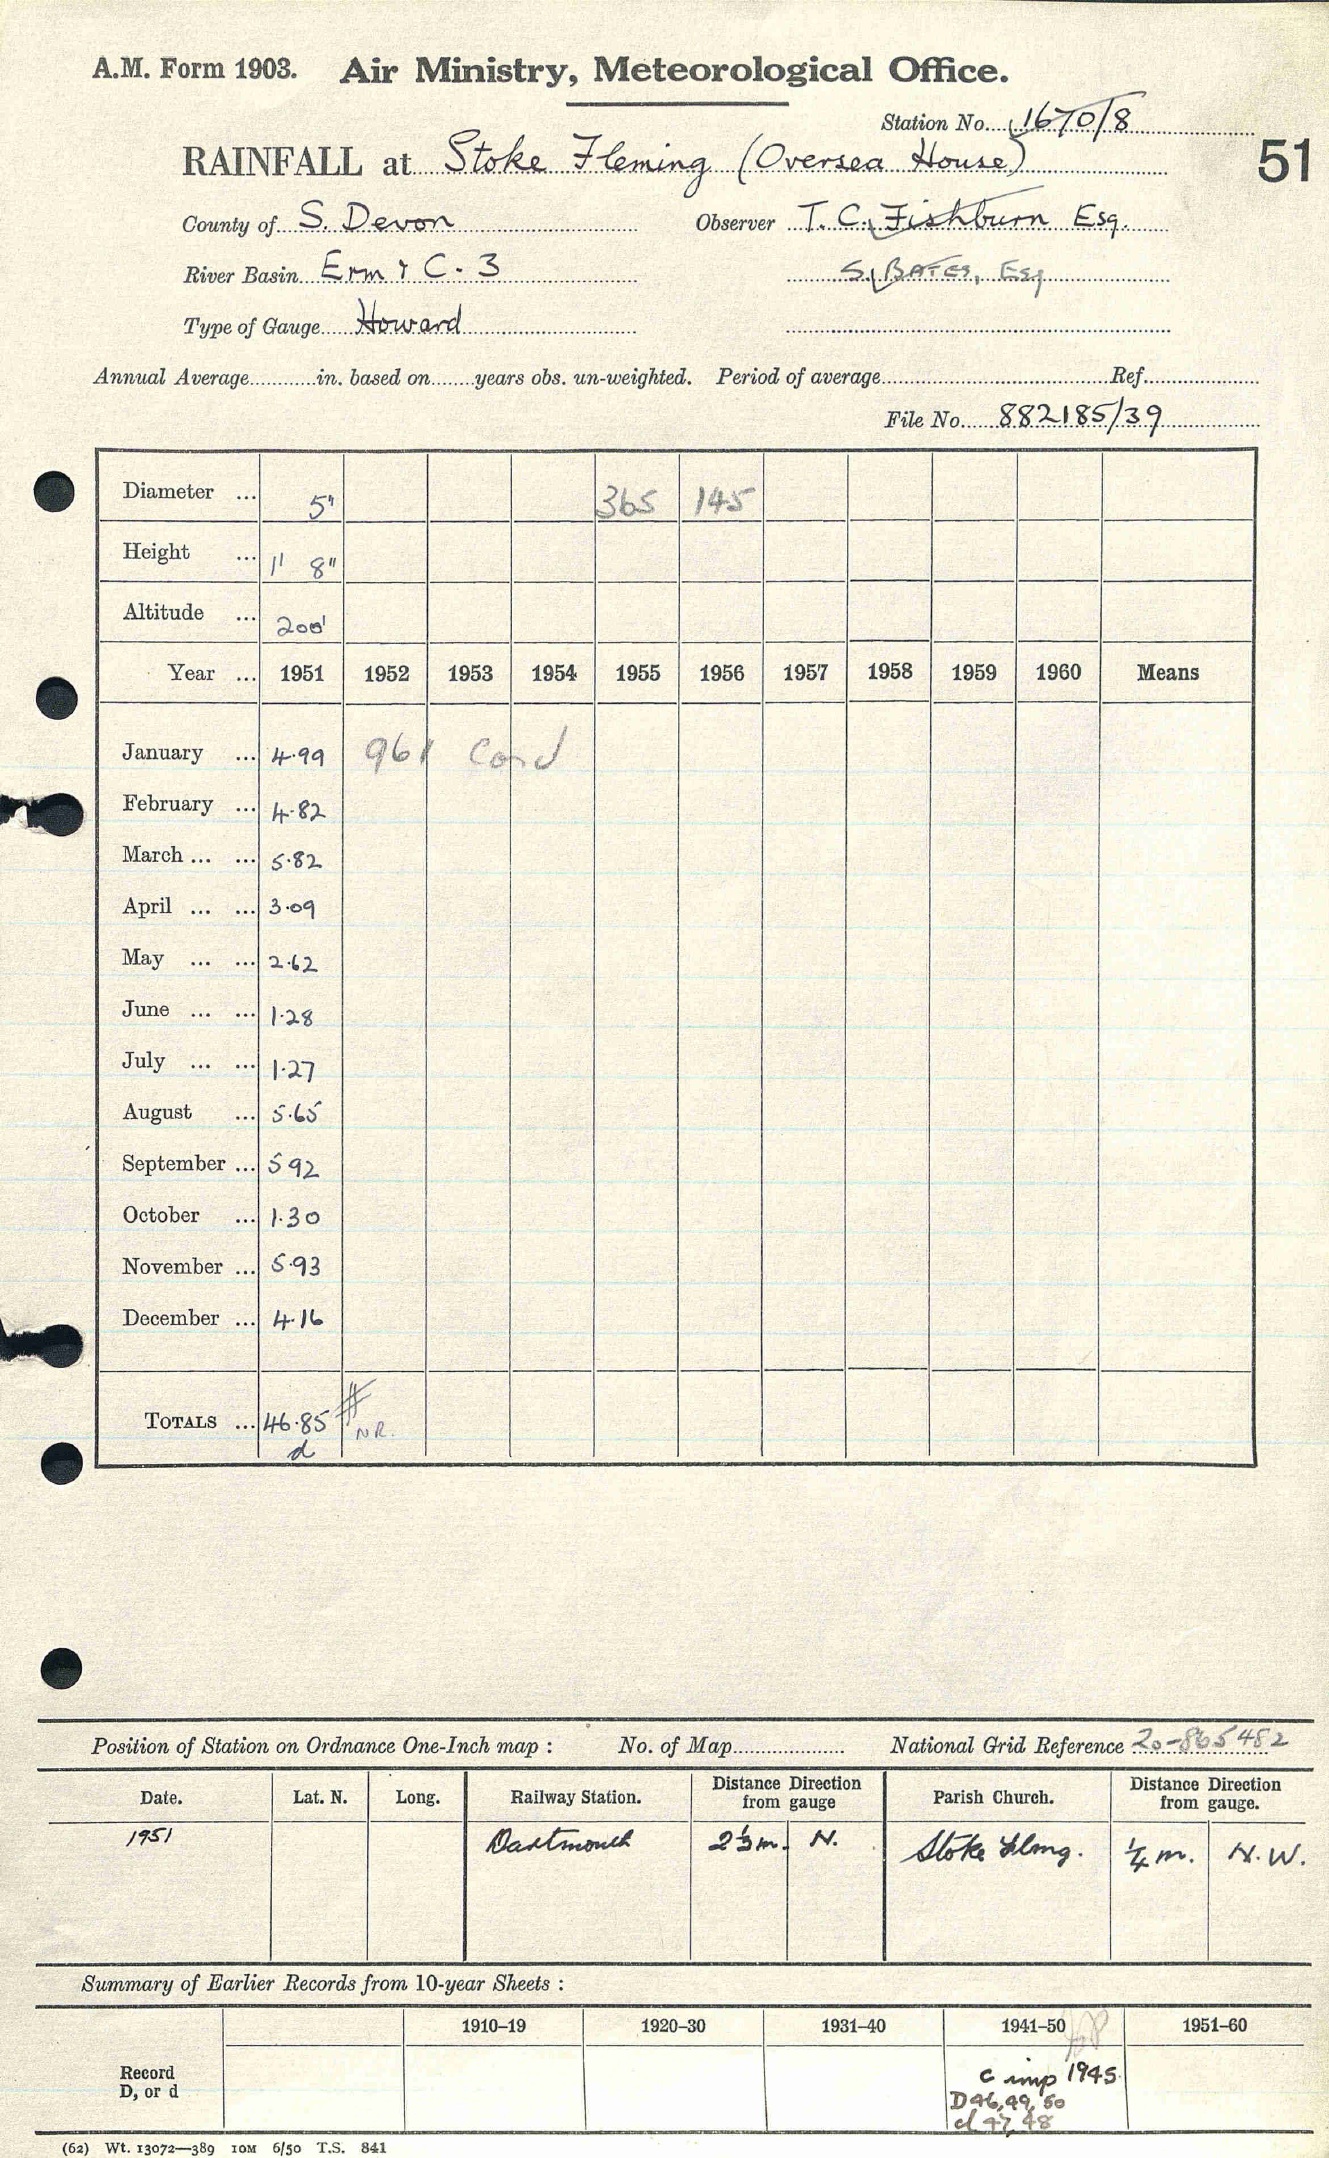 A.M. Form 1903. Air Ministry, Meteorological Office.
Station No. 1670/8
51
RAINFALL at Stoke Fleming (Oversea House)
County of S. Devon Observer T. C. Fishburn Esq.
River Basin Erm & C. 3 S. BATES, Esq
Type of Gauge Howard
Annual Average in. based on years obs. un-weighted. Period of average Ref.
File No. 882185/39
Diameter ... 5" 365 145
Height ... 1' 8"
Altitude ... 200'
Year ... 1951 1952 1953 1954 1955 1956 1957 1958 1959 1960 Means
January ... 4.99 961 Card
February ... 4.82
March ... ... 5.82
April ... ... 3.09
May ... ... 2.62
June ... ... 1.28
July ... ... 1.27
August ... 5.65
September ... 5 92
October ... 1.30
November ... 5.93
December ... 4.16
TOTALS ... 46.85 # NR.
d
Position of Station on Ordnance One-Inch map : No. of Map National Grid Reference 20-865482
Date. Lat. N. Long. Railway Station. Distance Direction from gauge Parish Church. Distance Direction from gauge.
1951 Dartmouth 2⅓ m. N. Stoke Flmg. ¼ m. N.W.
Summary of Earlier Records from 10-year Sheets :
1910–19 1920–30 1931–40 1941–50 1951–60
Record D, or d
c imp 1945
D46, 49, 50
d 47, 48
(62) Wt. 13072—389 10M 6/50 T.S. 841